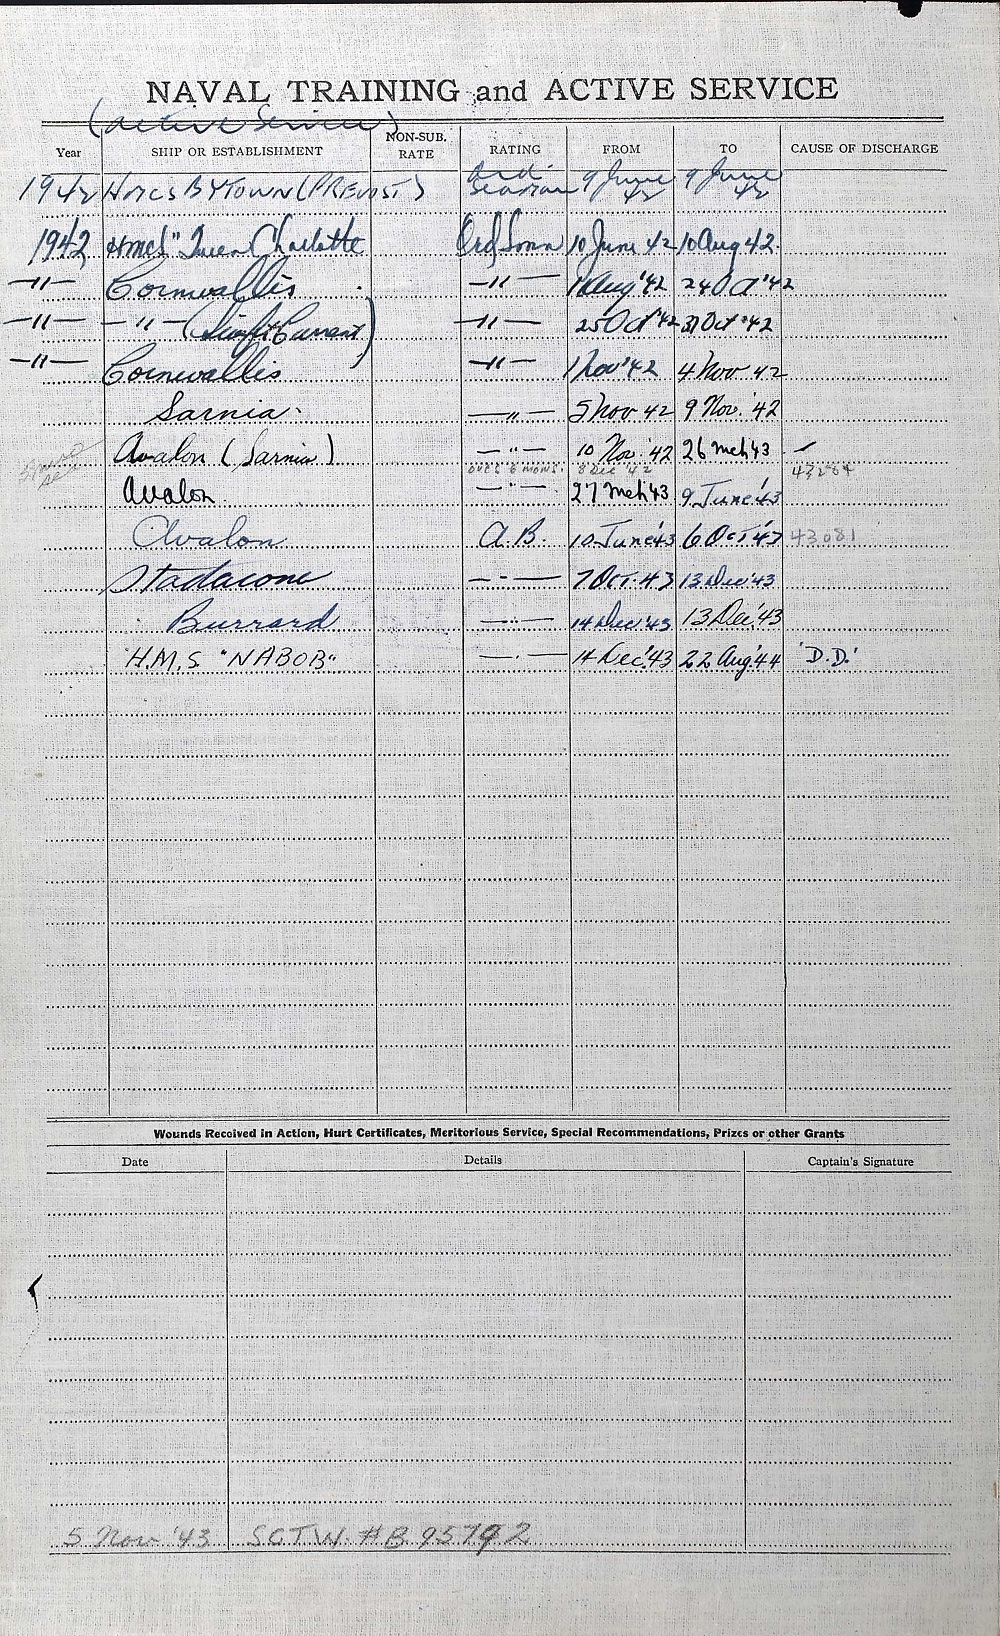 NAVAL TRAINING and ACTIVE SERVICE
(Active Service)
Year SHIP OR ESTABLISHMENT NON-SUB. RATE RATING FROM TO CAUSE OF DISCHARGE
1942 HMCS BYTOWN (PREVOST) Ord. Seaman 9 June 42 9 June 42
1942 HMCS "Queen Charlotte Ord Smn 10 June 42 10 Aug 42.
—"— Cornwallis —"— 11 Aug '42 24 Oct '42
—"— —"— (Swift Current) —"— 25 Oct '42 31 Oct '42
—"— Cornwallis —"— 1 Nov '42 4 Nov 42
Sarnia. —"— 5 Nov 42 9 Nov. '42
Avalon (Sarnia) —"— 10 Nov. '42 26 Mch 43
OVER 6 MONS. 8 DEC '42
Avalon. —"— 27 Mch 43 9 June '43
Avalon A.B. 10 June '43 6 Oct '43 43081
Stadacona —"— 7 Oct. 43 13 Dec '43
Burrard —"— 14 Dec '43 13 Dec '43
H.M.S. "NABOB" —"— 14 Dec. '43 22 Aug. '44 'D.D.'
Wounds Received in Action, Hurt Certificates, Meritorious Service, Special Recommendations, Prizes or other Grants
Date Details Captain's Signature
5 Nov '43 S.C.T.W. #B. 95792